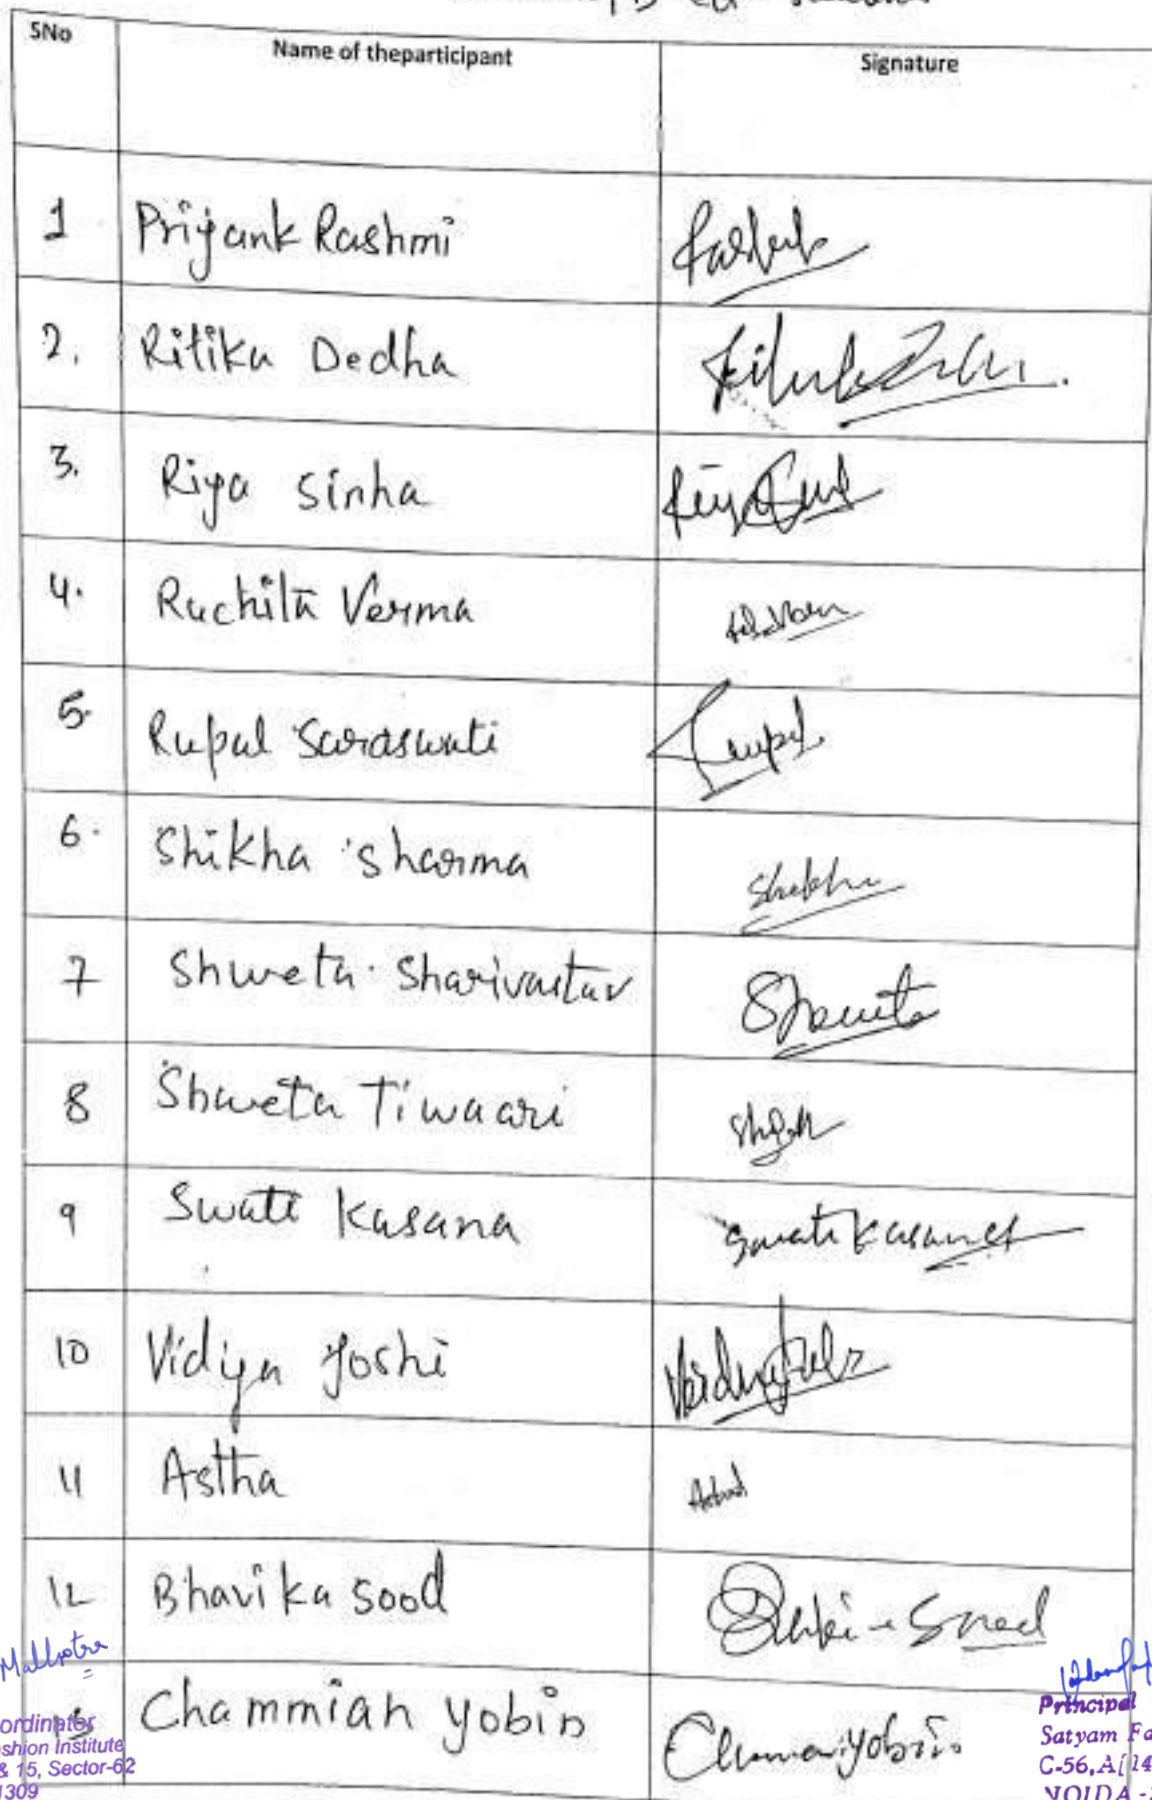 SNo Name of theparticipant Signature
1 Priyank Rashmi
2. Ritika Dedha
3. Riya Sinha
4. Ruchita Verma
5. Rupal Saraswati Rupal
6. Shikha Sharma Shikha
7 Shweta Sharivastav Shweta
8 Shweta Tiwaari
9 Swati Kasana Swati Kasana
10 Vidiya Joshi
11 Astha
12 Bhavika Sood
Malhotra
13 Chammiah Yobin
ordinator
shion Institute
& 15, Sector-62
1309
Principal
Satyam Fa
C-56, A/14
NOIDA -